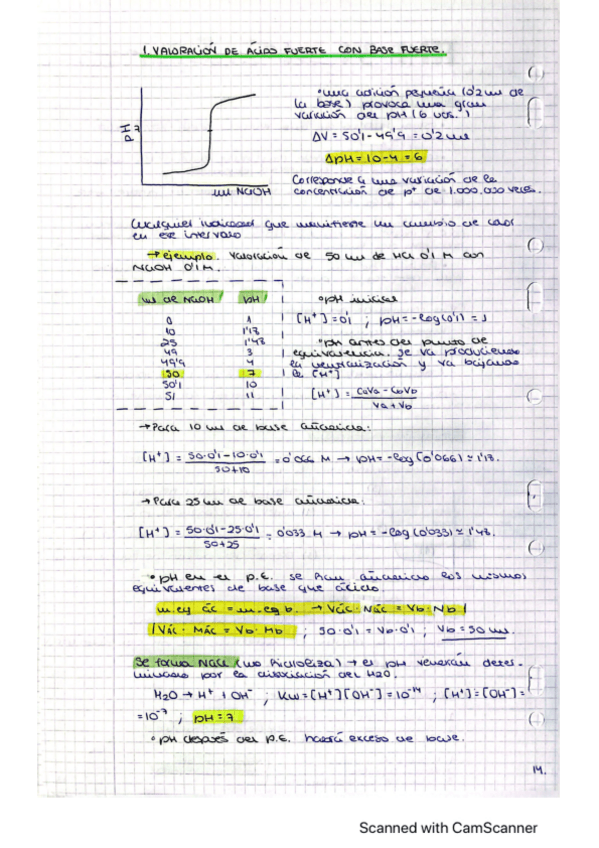 1. VALORACIÓN DE ÁCIDO FUERTE CON BASE FUERTE.
• una adición pequeña (0'2 ml de
la base) provoca una gran
variación del pH (6 uds.)
pH
7
ml NaOH
ΔV = 50'1 - 49'9 = 0'2 ml
ΔpH = 10 - 4 = 6
Corresponde a una variación de la
concentración de p+ de 1.000.000 veces.
Cualquier indicador que manifieste un cambio de color
en ese intervalo
→ ejemplo. Valoración de 50 ml de HCl 0'1 M con
NaOH 0'1 M.
ml de NaOH / pH /
0 1
10 1'17
25 1'48
49 3
49'9 4
50 7
50'1 10
51 11
• pH inicial
[H+] = 0'1 ; pH = -log(0'1) = 1
• pH antes del punto de
equivalencia. Se va produciendo
la neutralización y va bajando
la [H+]
[H+] = CaVa - CbVb / Va + Vb
→ Para 10 ml de base añadida:
[H+] = 50·0'1 - 10·0'1 / 50 + 10 = 0'066 M → pH = -log(0'066) ≃ 1'17.
→ Para 25 ml de base añadida:
[H+] = 50·0'1 - 25·0'1 / 50 + 25 = 0'033 M → pH = -log(0'033) ≃ 1'48.
• pH en el P.E. se han añadido los mismos
equivalentes de base que ácido.
m.eq ác = m.eq b. → Vác · Nác = Vb · Nb |
| Vác · Mác = Vb · Mb ; 50·0'1 = Vb·0'1 ; Vb = 50 ml.
Se forma NaCl (no hidroliza) → el pH vendrán deter-
minado por la disociación del H2O.
H2O → H+ + OH- ; Kw = [H+][OH-] = 10-14 ; [H+] = [OH-] =
= 10-7 ; pH = 7
• pH después del P.E. habrá exceso de base.
14.
Scanned with CamScanner